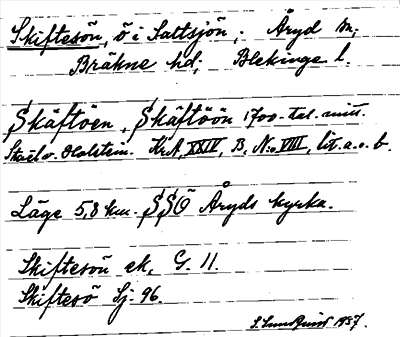 Skiftesön, ö i Saltsjön, Åryd sn;
Bräkne hd; Blekinge l.
Skäftöen, Skäftöön 1700-tal. mitt.
Stael v. Holstein. KrA, XXIV, B, No VIII, lit. a. o. b.
Läge 5,8 km. SSO Åryds kyrka.
Skifteson ek, G. 11.
Skiftesö Sj. 96.
S. Lundquist 1937.